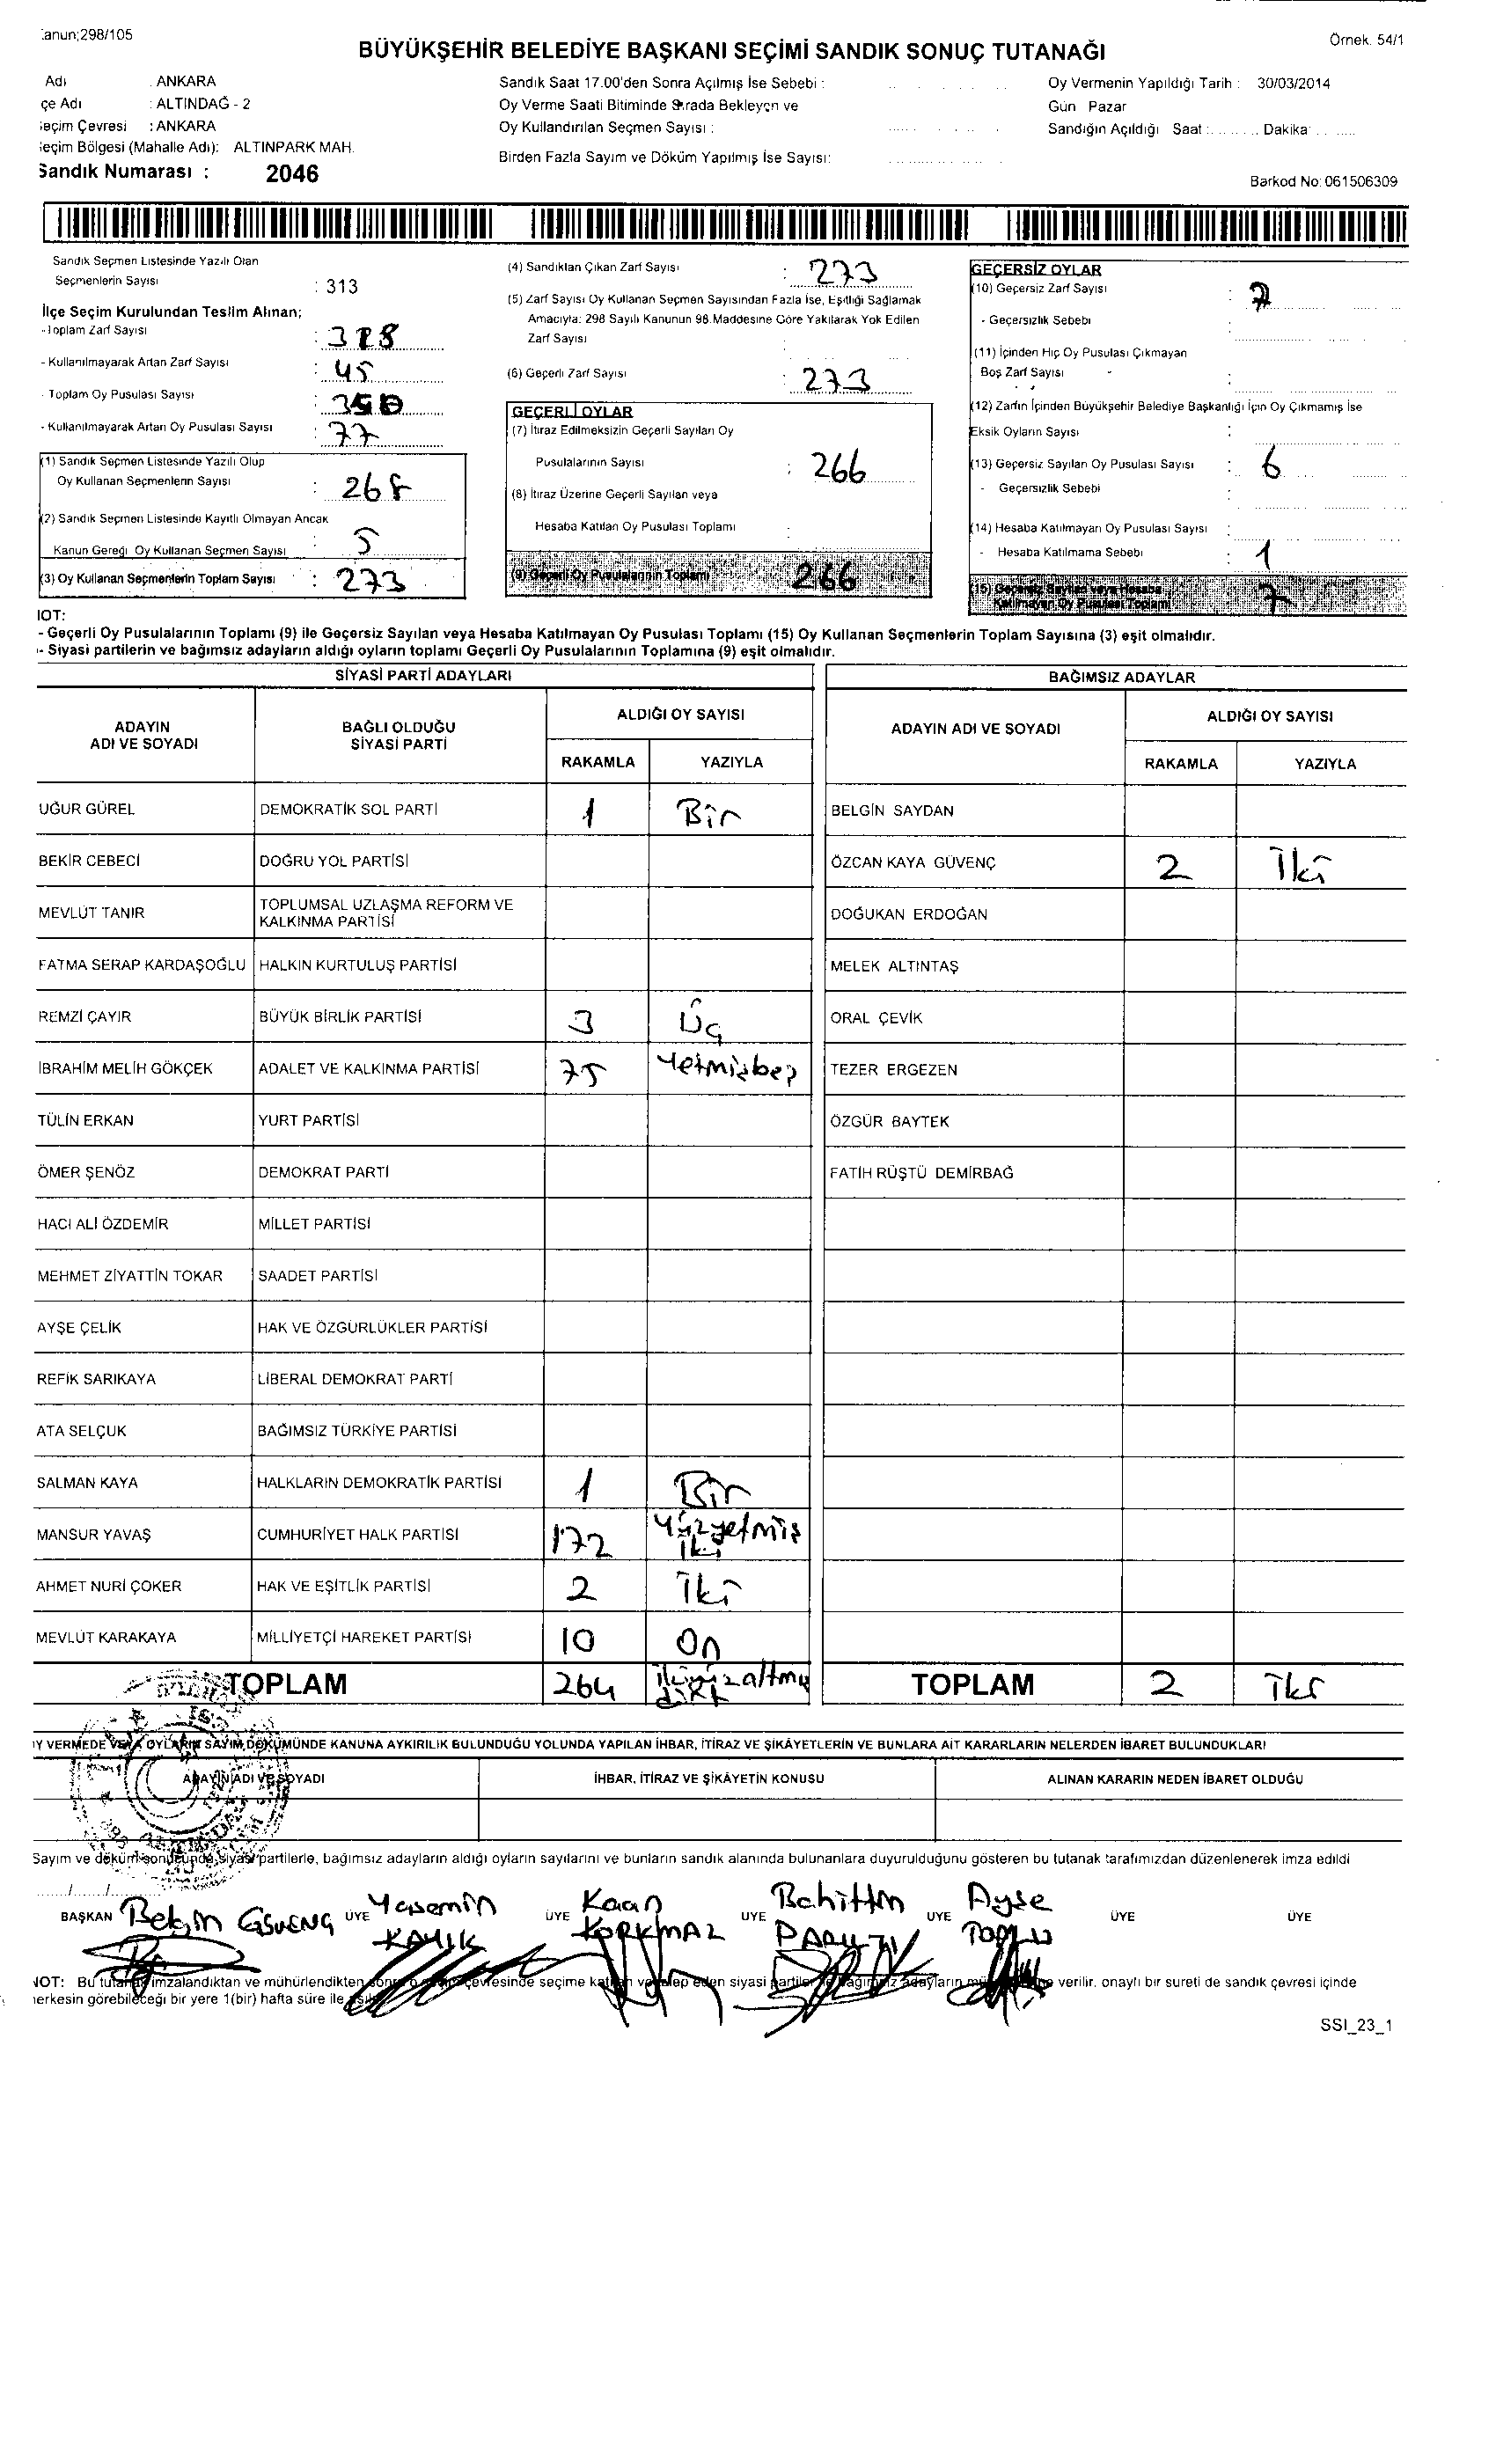 Kanun;298/105
Örnek. 54/1
BÜYÜKŞEHİR BELEDİYE BAŞKANI SEÇİMİ SANDIK SONUÇ TUTANAĞI
Adı : ANKARA
çe Adı : ALTINDAĞ - 2
eçim Çevresi : ANKARA
eçim Bölgesi (Mahalle Adı): ALTINPARK MAH.
Sandık Numarası : 2046
Sandık Saat 17.00'den Sonra Açılmış İse Sebebi :
Oy Verme Saati Bitiminde Sırada Bekleyen ve
Oy Kullandırılan Seçmen Sayısı :
Birden Fazla Sayım ve Döküm Yapılmış İse Sayısı:
Oy Vermenin Yapıldığı Tarih : 30/03/2014
Gün Pazar
Sandığın Açıldığı Saat :........ Dakika: ........
Barkod No: 061506309
Sandık Seçmen Listesinde Yazılı Olan
Seçmenlerin Sayısı : 313
İlçe Seçim Kurulundan Teslim Alınan;
-Toplam Zarf Sayısı : 318
- Kullanılmayarak Artan Zarf Sayısı : 45
- Toplam Oy Pusulası Sayısı : 350
- Kullanılmayarak Artan Oy Pusulası Sayısı : 77
(1) Sandık Seçmen Listesinde Yazılı Olup
Oy Kullanan Seçmenlerin Sayısı : 268
(2) Sandık Seçmen Listesinde Kayıtlı Olmayan Ancak
Kanun Gereği Oy Kullanan Seçmen Sayısı : 5
(3) Oy Kullanan Seçmenlerin Toplam Sayısı : 273
(4) Sandıktan Çıkan Zarf Sayısı : 273
(5) Zarf Sayısı Oy Kullanan Seçmen Sayısından Fazla İse, Eşitliği Sağlamak
Amacıyla: 298 Sayılı Kanunun 98.Maddesine Göre Yakılarak Yok Edilen
Zarf Sayısı :
(6) Geçerli Zarf Sayısı : 273
GEÇERLİ OYLAR
(7) İtiraz Edilmeksizin Geçerli Sayılan Oy
Pusulalarının Sayısı : 266
(8) İtiraz Üzerine Geçerli Sayılan veya
Hesaba Katılan Oy Pusulası Toplamı :
(9) Geçerli Oy Pusulalarının Toplamı : 266
GEÇERSİZ OYLAR
(10) Geçersiz Zarf Sayısı :
- Geçersizlik Sebebi :
(11) İçinden Hiç Oy Pusulası Çıkmayan
Boş Zarf Sayısı - :
(12) Zarfın İçinden Büyükşehir Belediye Başkanlığı İçin Oy Çıkmamış İse
Eksik Oyların Sayısı :
(13) Geçersiz Sayılan Oy Pusulası Sayısı : 6
- Geçersizlik Sebebi :
(14) Hesaba Katılmayan Oy Pusulası Sayısı :
- Hesaba Katılmama Sebebi : 1
(15) Geçersiz Sayılan veya Hesaba
Katılmayan Oy Pusulası Toplamı : 7
NOT:
- Geçerli Oy Pusulalarının Toplamı (9) ile Geçersiz Sayılan veya Hesaba Katılmayan Oy Pusulası Toplamı (15) Oy Kullanan Seçmenlerin Toplam Sayısına (3) eşit olmalıdır.
- Siyasi partilerin ve bağımsız adayların aldığı oyların toplamı Geçerli Oy Pusulalarının Toplamına (9) eşit olmalıdır.
SİYASİ PARTİ ADAYLARI
BAĞIMSIZ ADAYLAR
ADAYIN ADI VE SOYADI
BAĞLI OLDUĞU SİYASİ PARTİ
ALDIĞI OY SAYISI
RAKAMLA YAZIYLA
ADAYIN ADI VE SOYADI
ALDIĞI OY SAYISI
RAKAMLA YAZIYLA
UĞUR GÜREL DEMOKRATİK SOL PARTİ 1 Bir BELGİN SAYDAN
BEKİR CEBECİ DOĞRU YOL PARTİSİ ÖZCAN KAYA GÜVENÇ 2 İki
MEVLÜT TANIR TOPLUMSAL UZLAŞMA REFORM VE KALKINMA PARTİSİ DOĞUKAN ERDOĞAN
FATMA SERAP KARDAŞOĞLU HALKIN KURTULUŞ PARTİSİ MELEK ALTINTAŞ
REMZİ ÇAYIR BÜYÜK BİRLİK PARTİSİ 3 Üç ORAL ÇEVİK
İBRAHİM MELİH GÖKÇEK ADALET VE KALKINMA PARTİSİ 75 Yetmişbeş TEZER ERGEZEN
TÜLİN ERKAN YURT PARTİSİ ÖZGÜR BAYTEK
ÖMER ŞENÖZ DEMOKRAT PARTİ FATİH RÜŞTÜ DEMİRBAĞ
HACI ALİ ÖZDEMİR MİLLET PARTİSİ
MEHMET ZİYATTİN TOKAR SAADET PARTİSİ
AYŞE ÇELİK HAK VE ÖZGÜRLÜKLER PARTİSİ
REFİK SARIKAYA LİBERAL DEMOKRAT PARTİ
ATA SELÇUK BAĞIMSIZ TÜRKİYE PARTİSİ
SALMAN KAYA HALKLARIN DEMOKRATİK PARTİSİ 1 Bir
MANSUR YAVAŞ CUMHURİYET HALK PARTİSİ 172 Yüzyetmiş iki
AHMET NURİ ÇOKER HAK VE EŞİTLİK PARTİSİ 2 İki
MEVLÜT KARAKAYA MİLLİYETÇİ HAREKET PARTİSİ 10 On
TOPLAM 264 ikiyüzaltmış dört TOPLAM 2 İki
OY VERMEDE VEYA OYLARIN SAYIM DÖKÜMÜNDE KANUNA AYKIRILIK BULUNDUĞU YOLUNDA YAPILAN İHBAR, İTİRAZ VE ŞİKÂYETLERİN VE BUNLARA AİT KARARLARIN NELERDEN İBARET BULUNDUKLARI
ADAYIN ADI VE SOYADI İHBAR, İTİRAZ VE ŞİKÂYETİN KONUSU ALINAN KARARIN NEDEN İBARET OLDUĞU
Sayım ve döküm sonucunda, siyasi partilerle, bağımsız adayların aldığı oyların sayılarını ve bunların sandık alanında bulunanlara duyurulduğunu gösteren bu tutanak tarafımızdan düzenlenerek imza edildi
....../....../......
BAŞKAN ÜYE Yasemin ÜYE Kaan KORKMAZ ÜYE ÜYE Ayşe ÜYE ÜYE
NOT: Bu tutanağı imzalandıktan ve mühürlendikten sonra çevresinde seçime katılan ve talep eden siyasi partiler ile bağımsız adayların verilir. onaylı bir sureti de sandık çevresi içinde
herkesin görebileceği bir yere 1(bir) hafta süre ile
SSI_23_1